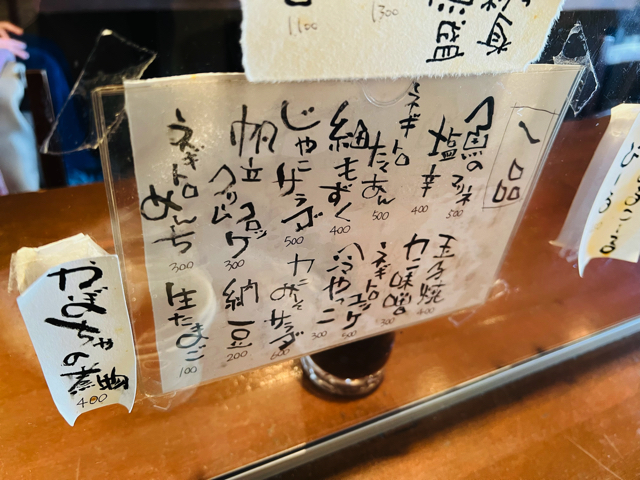 1100
1300
一品
塩辛
400
ネギトロ
たくあん
500
細もずく
400
じゃこサラダ
500
帆立
クリームコロッケ
300
ネギトロめんち
300
玉子焼
400
カニ味噌
300
ネギトロユッケ
500
冷やっこ
300
カニみそサラダ
600
納豆
200
生たまご
100
かぼちゃの煮物
400